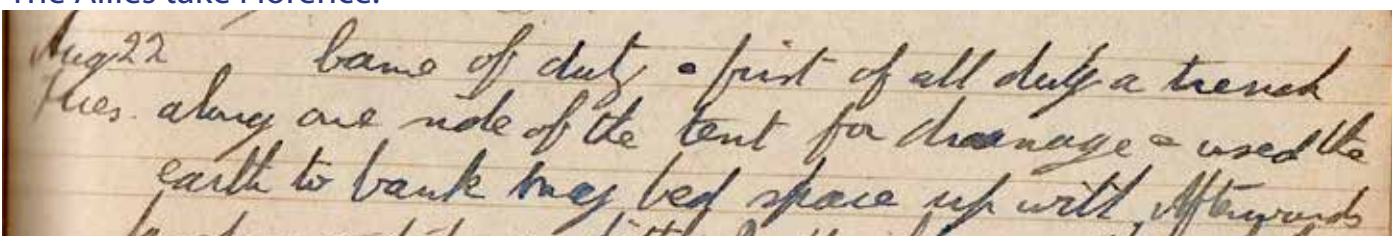 The Allies take Florence.
Aug 22 Came of duty & first of all dug a trench
Tues. along one side of the tent for drainage & used the
earth to bank my bed space up with. Afterwards